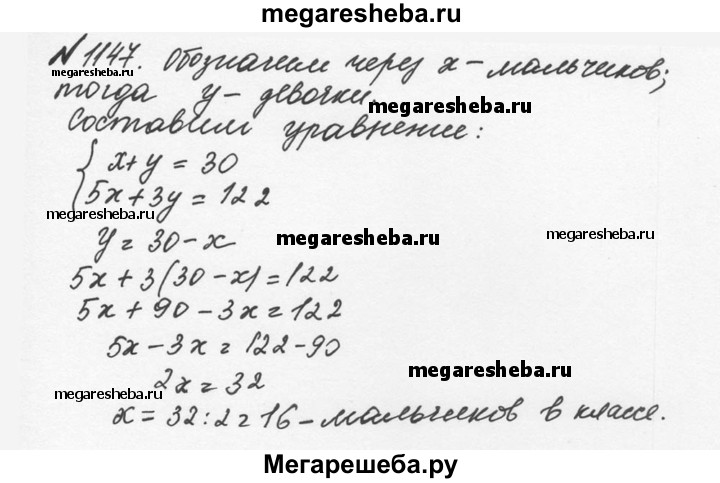 megaresheba.ru
№ 1147. Обозначим через x – мальчиков;
megaresheba.ru
тогда y – девочки.
megaresheba.ru
Составим уравнение:
{ x+y = 30
5x+3y = 122
megaresheba.ru
megaresheba.ru
y = 30 - x
megaresheba.ru
megaresheba.ru
5x + 3(30 - x) = 122
5x + 90 - 3x = 122
5x - 3x = 122 - 90
megaresheba.ru
2x = 32
megaresheba.ru
x = 32 : 2 = 16 – мальчиков в классе.
megaresheba.ru
Мегарешеба.ру